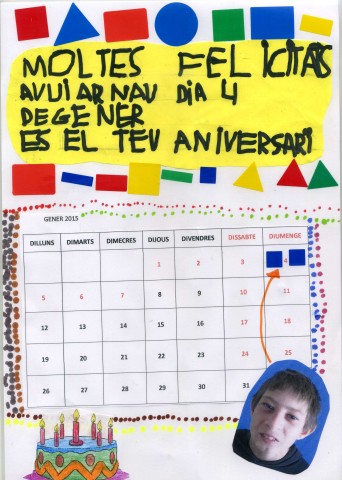 MOLTES FELICITATS
AVUI ARNAU DIA 4
DE GENER
ES EL TEU ANIVERSARI
GENER 2015
DILLUNS DIMARTS DIMECRES DIJOUS DIVENDRES DISSABTE DIUMENGE
1 2 3 4
5 6 7 8 9 10 11
12 13 14 15 16 17 18
19 20 21 22 23 24 25
26 27 28 29 30 31